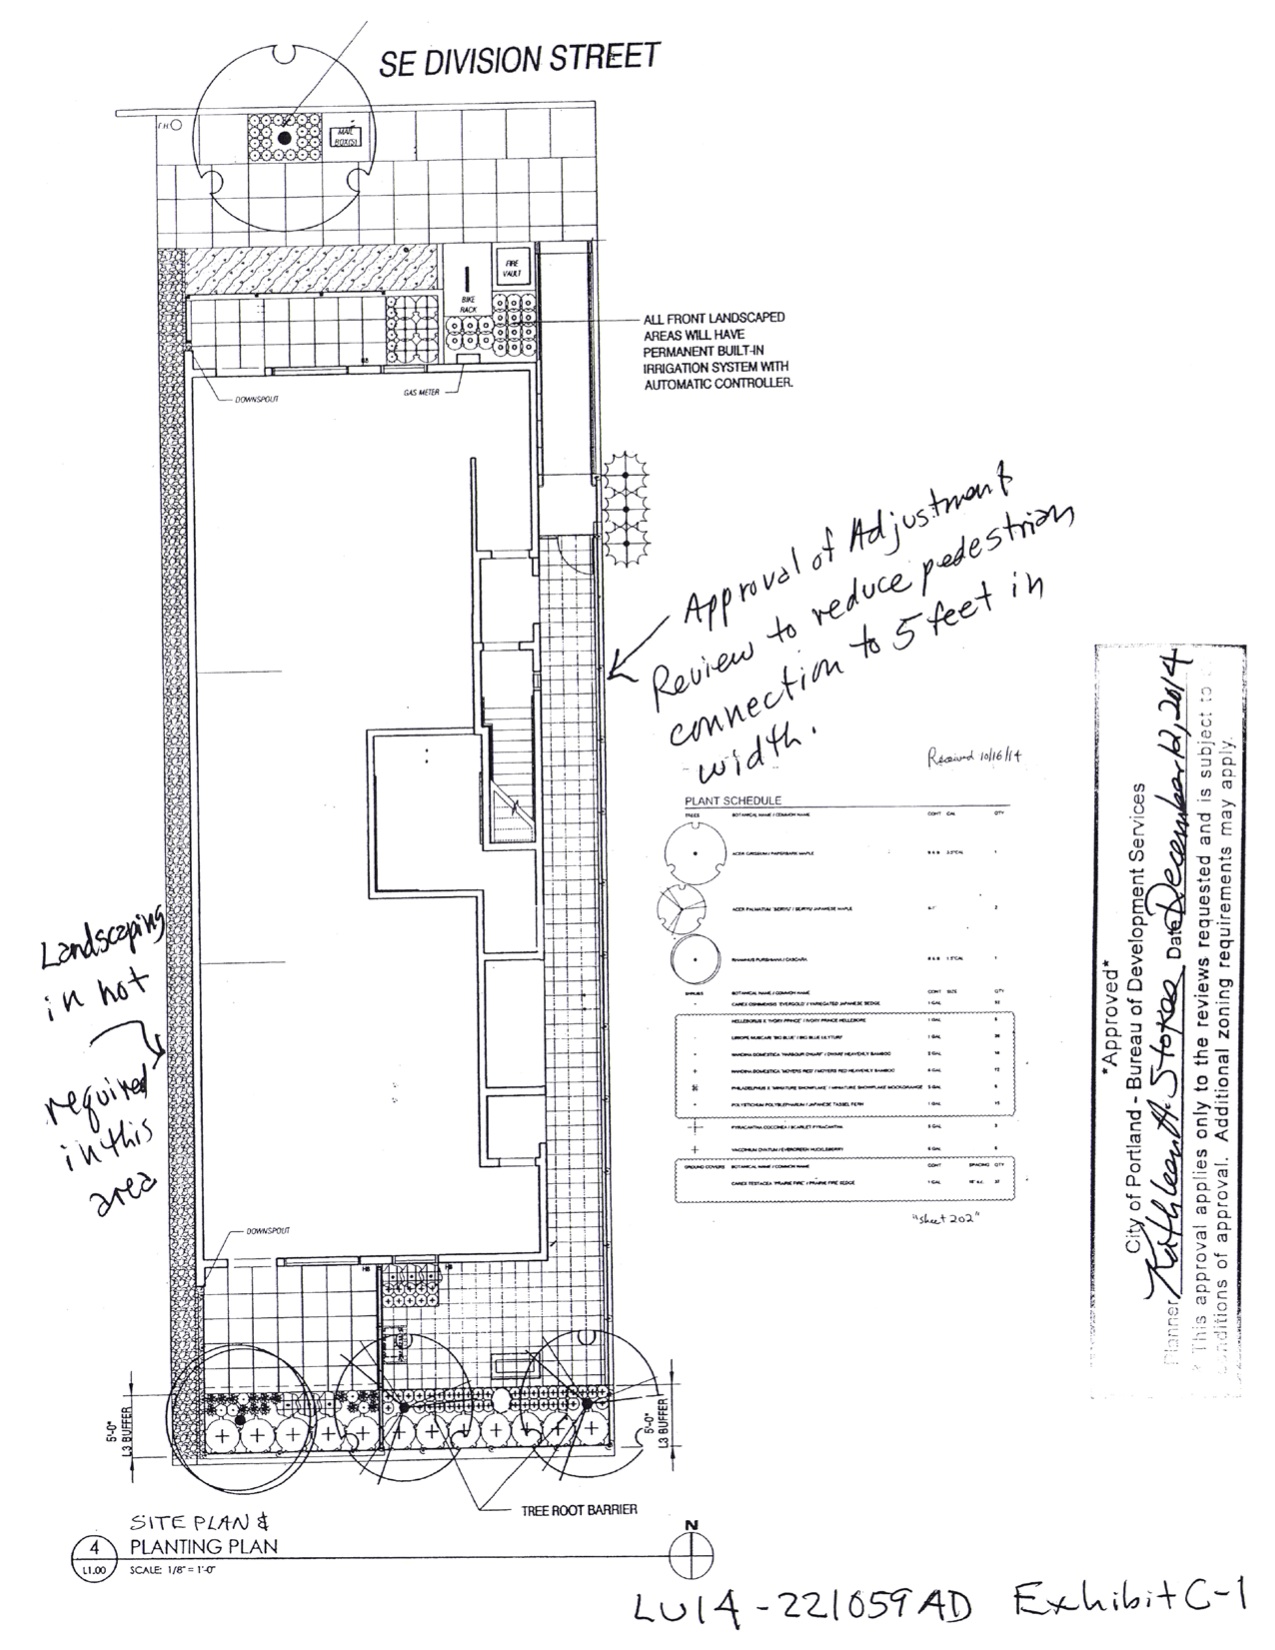 SE DIVISION STREET
MAIL
BOX(S)
FIRE
VAULT
BIKE
RACK
ALL FRONT LANDSCAPED
AREAS WILL HAVE
PERMANENT BUILT-IN
IRRIGATION SYSTEM WITH
AUTOMATIC CONTROLLER.
DOWNSPOUT
GAS METER
Approval of Adjustment
Review to reduce pedestrian
connection to 5 feet in
width.
Received 10/16/14
PLANT SCHEDULE
TREES BOTANICAL NAME / COMMON NAME CONT CAL QTY
ACER GRISEUM / PAPERBARK MAPLE B & B 2.0"CAL 1
2
RHAMNUS PURSHIANA / CASCARA B & B 1.5"CAL 1
SHRUBS BOTANICAL NAME / COMMON NAME CONT SIZE QTY
1 GAL
HELLEBORUS X 'IVORY PRINCE' / IVORY PRINCE HELLEBORE 1 GAL
LIRIOPE MUSCARI 'BIG BLUE' / BIG BLUE LILYTURF 1 GAL
NANDINA DOMESTICA 'HARBOUR DWARF' / DWARF HEAVENLY BAMBOO
NANDINA DOMESTICA 'MOYERS RED' / MOYERS RED HEAVENLY BAMBOO
PHILADELPHUS X 'MINIATURE SNOWFLAKE' / MINIATURE SNOWFLAKE MOCKORANGE
POLYSTICHUM POLYBLEPHARUM / JAPANESE TASSEL FERN 1 GAL
PYRACANTHA COCCINEA / SCARLET PYRACANTHA
VACCINIUM OVATUM / EVERGREEN HUCKLEBERRY
GROUND COVERS BOTANICAL NAME / COMMON NAME CONT SPACING QTY
CAREX TESTACEA 'PRAIRIE FIRE' / PRAIRIE FIRE SEDGE 1 GAL
"sheet 202"
*Approved*
City of Portland - Bureau of Development Services
Planner Kathleen A. Stokes Date December 12, 2014
* This approval applies only to the reviews requested and is subject to
conditions of approval. Additional zoning requirements may apply.
Landscaping
in not
required
in this
area
DOWNSPOUT
HB
HB
5'-0"
L3 BUFFER
5'-0"
L3 BUFFER
TREE ROOT BARRIER
SITE PLAN &
4 PLANTING PLAN
L1.00 SCALE: 1/8" = 1'-0"
N
LU14-221059AD Exhibit C-1